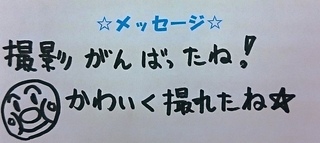 ☆メッセージ☆
撮影がんばったね!
かわいく撮れたね☆